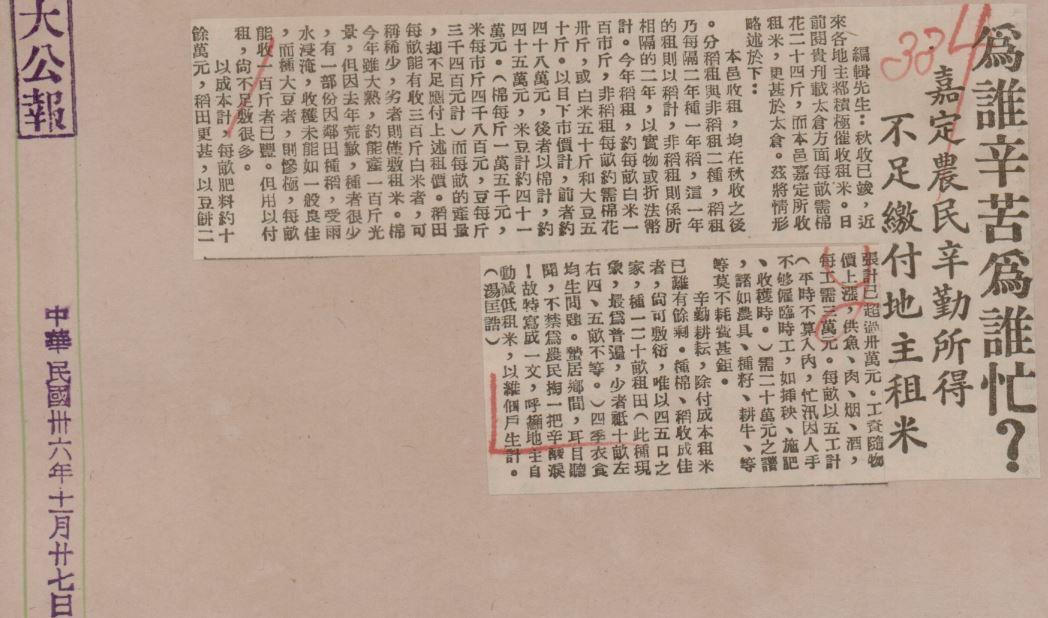 為誰辛苦為誰忙？
嘉定農民辛勤所得
不足繳付地主租米
304
編輯先生：秋收已竣，近
來各地主都積極催收租米。日
前閱貴刊載太倉方面每畝需棉
花二十四斤，而本邑嘉定所收
租米，更甚於太倉。茲將情形
略述於下：
本邑收租，均在秋收之後
。分稻租與非稻租二種，稻租
乃每隔二年種一年稻，這一年
的租則以稻計，非稻租則係所
相隔的二年，以實物或折法幣
計。今年稻租，約每畝白米一
百市斤，非稻租每畝約需棉花
卅斤，或白米五十斤和大豆五
十斤。以目下市價計，前者約
四十八萬元，後者以棉計，約
四十五萬元，米豆計約四十一
萬元。（棉每斤一萬五千元，
米每市斤四千八百元，豆每斤
三千四百元計）而每畝的產量
，却不足應付上述租價。稻田
每畝能有收三百斤白米者，可
稱稀少，劣者則僅敷租米。棉
今年雖大熟，約能產一百斤光
景，但因去年荒歉，種者很少
，有一部份因鄰田種稻，受雨
水浸淹，收穫未能如一般良佳
，而種大豆者，則慘極，每畝
能收一百斤者已豐。但用以付
租，尙不足敷很多。
以成本計，每畝肥料約十
餘萬元，稻田更甚，以豆餅二
張計已超過卅萬元。工資隨物
價上漲，供魚、肉、烟、酒，
每工需三萬元。每畝以五工計
（平時不算入內，忙汛因人手
不够僱臨時工，如揷秧、施肥
、收穫時。）需二十萬元之譜
，諸如農具、種籽、耕牛、等
等莫不耗貲甚鉅。
辛勤耕耘，除付成本租米
已難有餘剩。種棉、稻收成佳
者，尙可敷衍，唯以四五口之
家，種一二十畝租田（此種現
象，最爲普遍，少者祗十畝左
右四、五畝不等。）四季衣食
均生問題。蟄居鄉間，耳目聽
聞，不禁爲農民掬一把辛酸淚
！故特寫成一文，呼籲地主自
動減低租米，以維佃戶生計。
（湯匡誥）
大公報
中華民國卅六年十一月廿七日